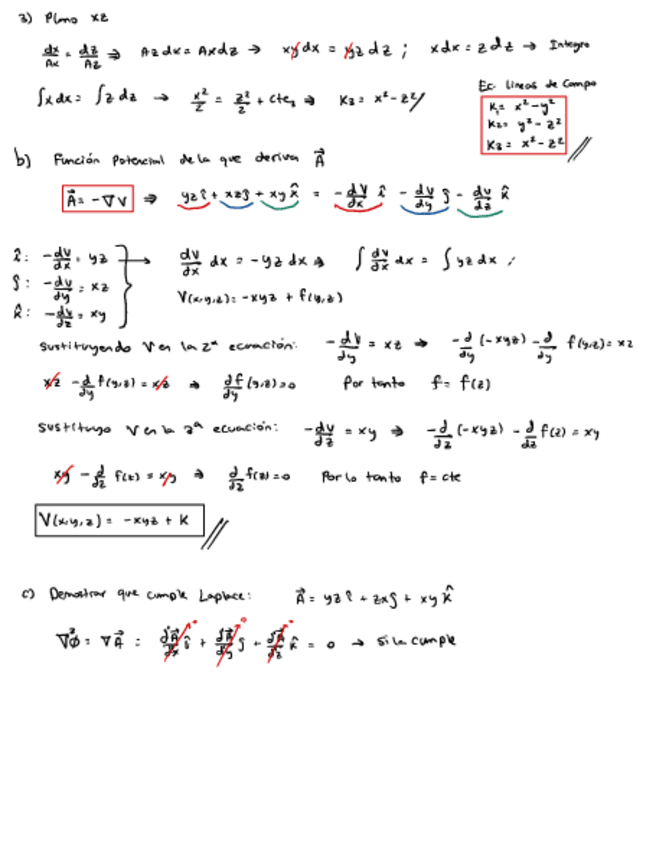 3) Plano xz
dx/Ax = dz/Az ⇒ Az dx = Ax dz → xy dx = yz dz ; x dx = z dz → Integro
∫x dx = ∫z dz → x²/2 = z²/2 + cte₃ ⇒ K₃ = x² - z² //
Ec. lineas de Campo
K₁ = x² - y²
K₂ = y² - z²
K₃ = x² - z² //
b) Función Potencial de la que deriva A⃗
A⃗ = -∇V ⇒ yz î + xz ĵ + xy k̂ = -dV/dx î - dV/dy ĵ - dV/dz k̂
î: -dV/dx = yz → dV/dx dx = -yz dx ⇒ ∫ dV/dx dx = ∫ yz dx ;
ĵ: -dV/dy = xz
V(x,y,z) = -xyz + f(y,z)
k̂: -dV/dz = xy
Sustituyendo V en la 2ª ecuación: -dV/dy = xz ⇒ -d/dy (-xyz) - d/dy f(y,z) = xz
xz - d/dy f(y,z) = xz ⇒ df/dy (y,z) = 0 Por tanto f = f(z)
Sustituyo V en la 3ª ecuación: -dV/dz = xy ⇒ -d/dz (-xyz) - d/dz f(z) = xy
xy - d/dz f(z) = xy ⇒ d/dz f(z) = 0 Por lo tanto f = cte
V(x,y,z) = -xyz + K //
c) Demostrar que cumple Laplace: A⃗ = yz î + zx ĵ + xy k̂
∇²Ø = ∇A⃗ = dA⃗/dx î + dA⃗/dy ĵ + dA⃗/dz k̂ = 0 → si la cumple